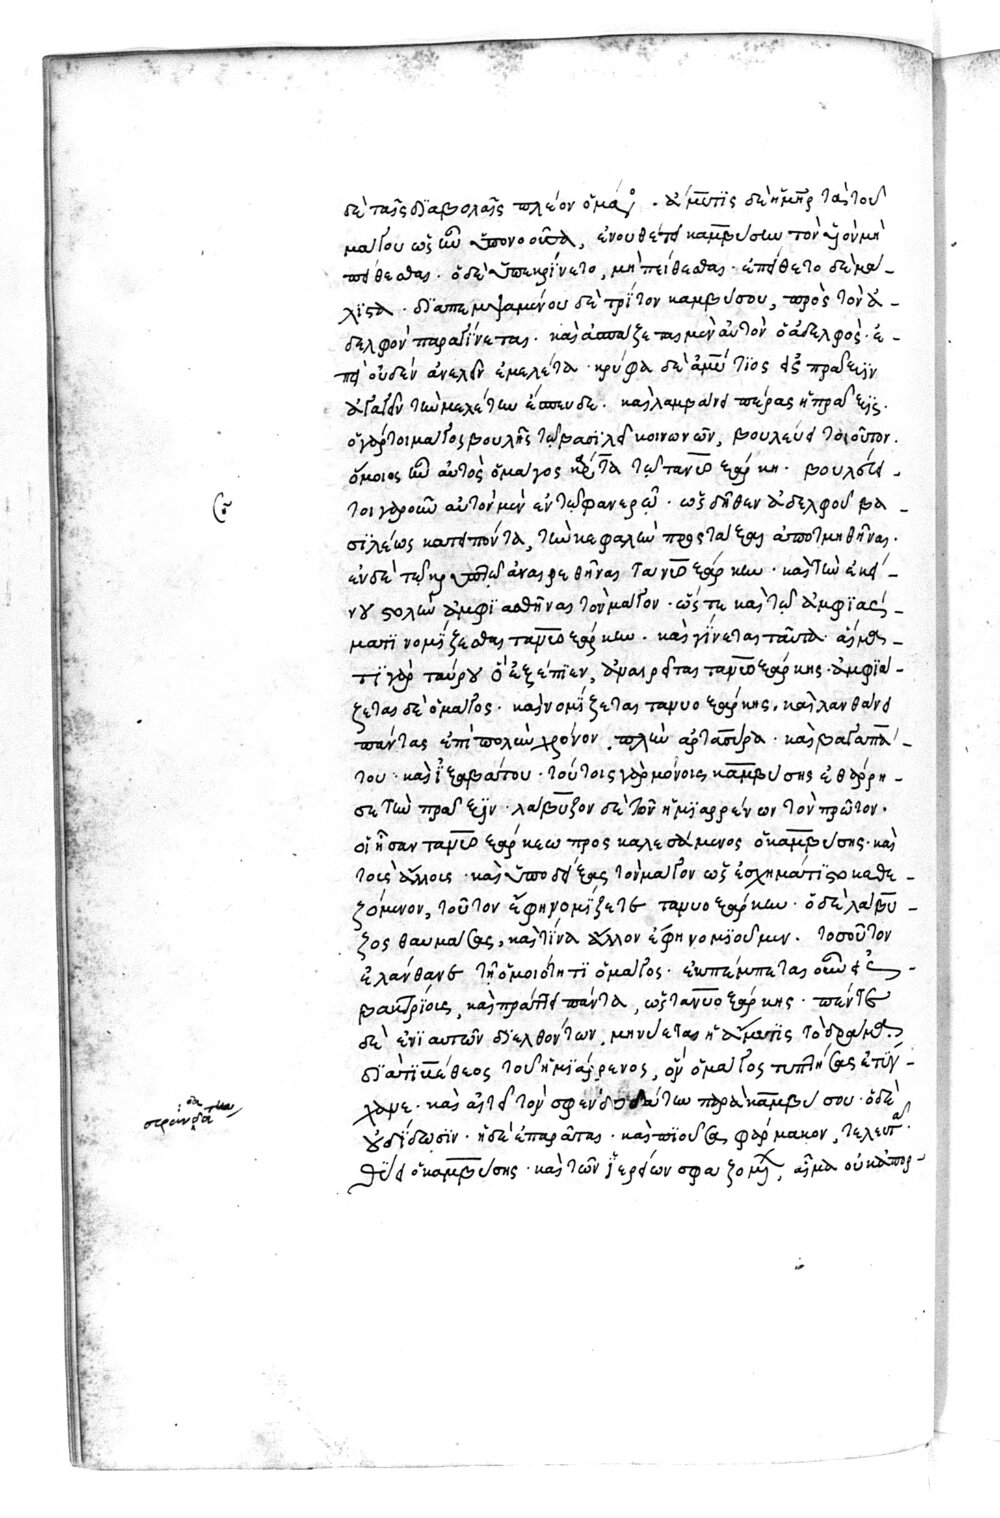 δὲ ταῖς διαβολαῖς πλέον ὁ μάγος. ἄμυτις δὲ ἡ μήτηρ τὰ τοῦ
μάγου ὡς ὑπονοοῦσα, ἐνουθέτει καμβύσην τὸν υἱὸν μὴ
πείθεσθαι. ὁ δὲ ὑπεκρίνετο, μὴ πείθεσθαι. ἐπείθετο δὲ μά-
λιστα. διαπεμψαμένου δὲ τρίτον καμβύσου, πρὸς τὸν ἀ-
δελφὸν παραγίνεται. καὶ ἀσπάζεται μὲν αὐτὸν ὁ ἀδελφὸς. ἐ-
πεὶ οὐδὲν ἀνελεῖν ἐμελέτα. κρύφα δὲ ἀμύτιος εἰς πρᾶξιν
ἀγαγεῖν τὴν μελέτην ἔσπευδε. καὶ λαμβάνει πέρας ἡ πρᾶξις.
ὁ γάρ τοι μάγος βουλῆς τῷ βασιλεῖ κοινωνῶν, βουλεύει τοιοῦτον.
ὅμοιος ἦν αὐτὸς ὁ μάγος κατὰ τῷ τανυοξάρκῃ. βουλεύει
τοιγαροῦν αὐτὸν μὲν ἐν τῷ φανερῷ. ὡς δῆθεν ἀδελφοῦ βα-
σιλέως κατειπόντα, τὴν κεφαλὴν προστάξαι ἀποτμηθῆναι.
ἐν δὲ τῷ κρυπτῷ ἀναιρεθῆναι τανυοξάρκην. καὶ τὴν ἐκεί-
νου στολὴν ἀμφιασθῆναι τὸν μάγον. ὥστε καὶ τῷ ἀμφιάς-
ματι νομίζεσθαι τανυοξάρκην. καὶ γίνεται ταῦτα. αἵμα-
τι γὰρ ταύρου ὃ ἐξέπιεν, ἀναιρεῖται τανυοξάρκης. ἀμφιά-
ζεται δὲ ὁ μάγος. καὶ νομίζεται τανυοξάρκης. καὶ λανθάνει
πάντας ἐπὶ πολὺν χρόνον, πλὴν ἀρτασύρα. καὶ βαγαπά-
του. καὶ ἰξαβάτου. τούτοις γὰρ μόνοις καμβύσης ἐθάρρη-
σε τὴν πρᾶξιν. λάβυξον δὲ τῶν ἡμιαρρένων τὸν πρῶτον.
οἳ ἦσαν τανυοξάρκεω προσκαλεσάμενος ὁ καμβύσης. καὶ
τοὺς ἄλλους. καὶ ὑποδείξας τὸν μάγον ὡς ἐσχημάτιστο καθε-
ζόμενον, τοῦτον ἔφη νομίζετε τανυοξάρκην. ὁ δὲ λάβυ-
ξος θαυμάσας, καὶ τίνα ἄλλον ἔφη νομιοῦμεν. τοσοῦτον
ἐλάνθανε τῇ ὁμοιότητι ὁ μάγος. ἐκπέμπεται οὖν εἰς
βακτρίους, καὶ πράττει πάντα, ὡς τανυοξάρκης. πέντε
δὲ ἐνιαυτῶν διελθόντων, μηνύεται ἡ ἄμυτις τὸ δρᾶμα.
διὰ τιβέθεος τοῦ ἡμιάρρενος, ὃν ὁ μάγος τυπτήσας ἐτύγ-
χανε. καὶ αἰτεῖ τὸν σφενδαδάτην παρὰ καμβύσου. ὁ δὲ
οὐ δίδωσιν. ἡ δὲ ἐπαρᾶται. καὶ πιοῦσα φάρμακον, τελευτᾷ.
θύει ὁ καμβύσης. καὶ τῶν ἱερείων σφαζομένων, αἷμα οὐκ ἀπορ-